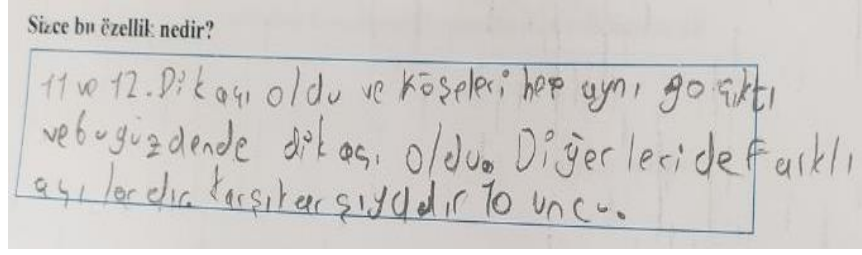 Sizce bu özellik nedir?
11 ve 12. Dik açı oldu ve köşeleri hep aynı 90 çıktı
ve bu yüzdende dik açı oldu. Diğerleri de farklı
açılardır. karşıkarşıyadır 10 uncu.